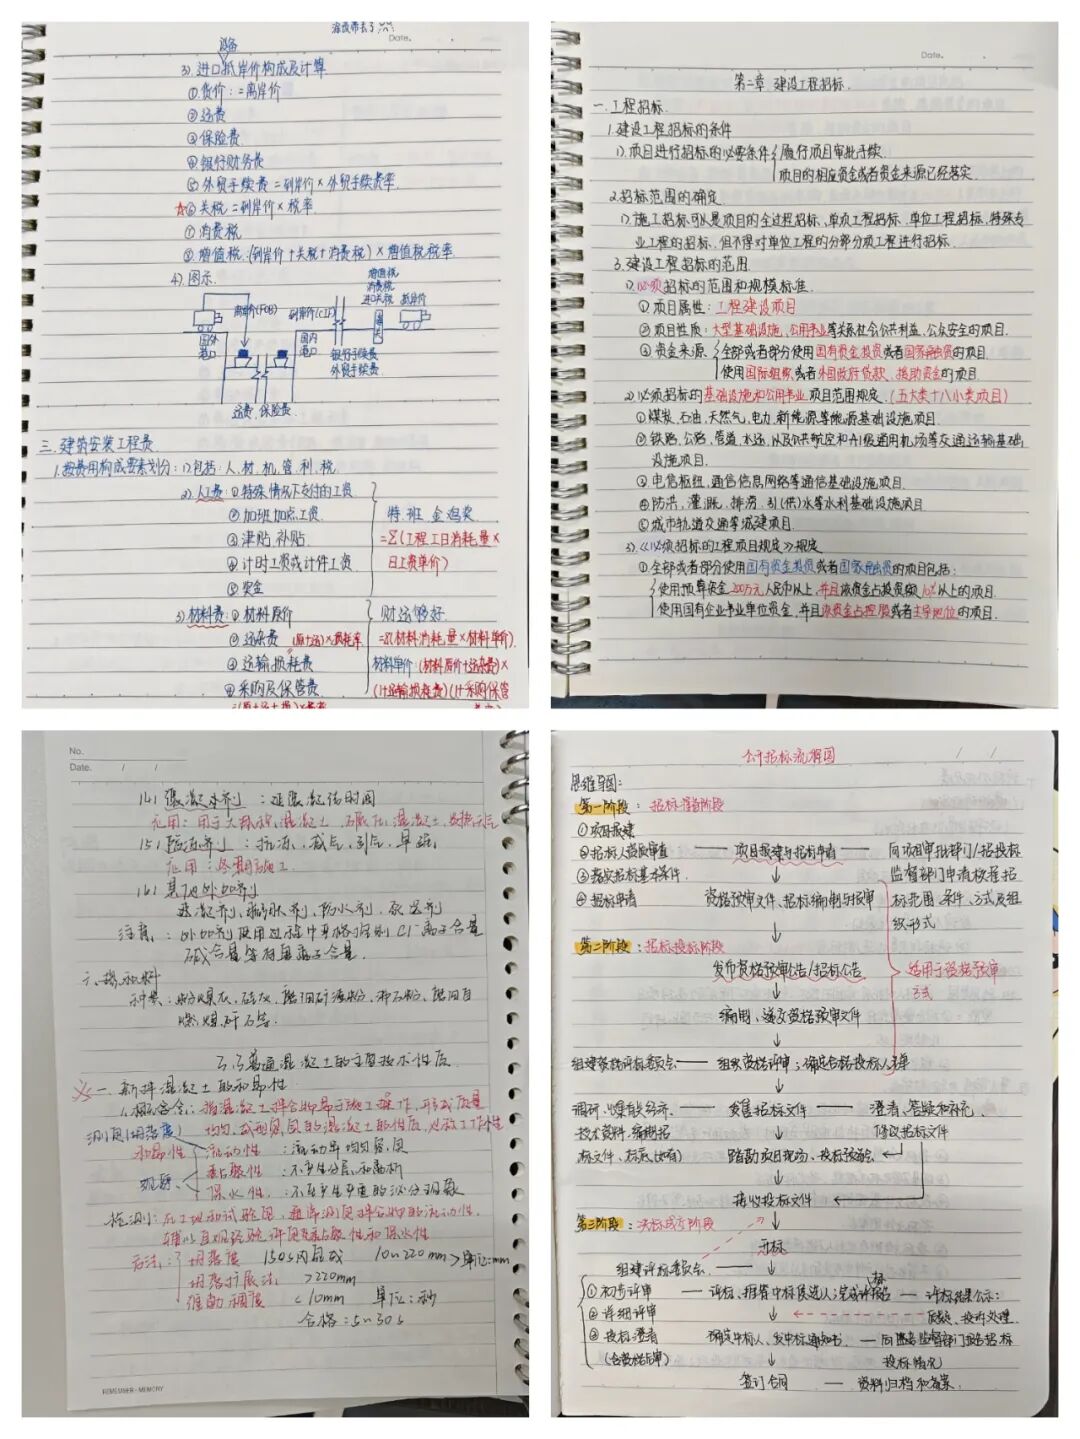 Date.
设备
3).进口抵岸价构成及计算
①货价:=离岸价
②运费
③保险费
④银行财务费
⑤外贸手续费=到岸价×外贸手续费率.
☆⑥关税=到岸价×税率.
⑦消费税
⑧增值税:(到岸价+关税+消费税)×增值税税率
4).图示
增值税
消费税
进口关税 抵岸价
离岸价(FOB) 到岸价(CIF)
国外港口
国内港口
银行手续费
外贸手续费
运费,保险费
三.建筑安装工程费
1.按费用构成要素划分:1).包括:人.材.机.管.利.税.
2).人工费:①特殊情况下支付的工资
②加班加点工资. 特.班.金鸡奖
③津贴.补贴. =Σ(工程工日消耗量×
④计时工资或计件工资 日工资单价)
⑤奖金
3)材料费:①材料原价 财运够好.
②运杂费 (原+运)×损耗率 =Σ(材料消耗量×材料单价)
③运输损耗费 材料单价:(材料原价+运杂费)×
④采购及保管费 (1+运输损耗费)(1+采购保管
Date.
第二章 建设工程招标.
一.工程招标.
1.建设工程招标的条件
1).项目进行招标的必要条件 履行项目审批手续.
项目的相应资金或者资金来源已经落实.
2.招标范围的确定
1).施工招标可以是项目的全过程招标、单项工程招标、单位工程招标、特殊专
业工程的招标,但不得对单位工程的分部分项工程进行招标.
3.建设工程招标的范围
1).必须招标的范围和规模标准.
①项目属性:工程建设项目
②项目性质:大型基础设施、公用事业等关系社会公共利益,公众安全的项目.
③资金来源 全部或者部分使用国有资金投资或者国家融资的项目.
使用国际组织或者外国政府贷款、援助资金的项目
2).必须招标的基础设施和公用事业项目范围规定.(五大类十八小类项目)
①煤炭.石油.天然气.电力.新能源等能源基础设施项目.
②铁路.公路.管道.水运,以及公共航空和A1级通用机场等交通运输基础
设施项目.
③电信枢纽.通信信息网络等通信基础设施项目.
④防洪.灌溉.排涝.引(供)水等水利基础设施项目
⑤城市轨道交通等城建项目.
3).《必须招标的工程项目规定》规定
①全部或者部分使用国有资金投资或者国家融资的项目包括:
使用预算资金200万元人民币以上,并且该资金占投资额10%以上的项目.
使用国有企业事业单位资金,并且该资金占控股或者主导地位的项目.
No.
Date. / /
(4)缓凝剂:延缓凝结时间
应用:用于大体积混凝土
(5)防冻剂:抗冻,减气,引气,早强.
应用:冬期施工
(6)其他外加剂
速凝剂、防水剂、泵送剂
注意:外加剂使用过程中严格控制Cl⁻离子含量
碱含量等有害离子含量.
六.掺和料
种类:粉煤灰,硅灰,沸石粉,
燃煤矸石等.
3.3普通混凝土的主要技术性质
一.新拌混凝土的和易性
1.概念含义:指混凝土拌合物易于施工操作,形成质量
均匀,成型密实的混凝土的性质,也称工作性
和易性 流动性:流动与均匀密实
黏聚性:不产生分层和离析
保水性:不产生严重的泌水现象
检测:在工地和试验室,通常测定拌合物的流动性,
辅以直观经验评定黏聚性和保水性
方法:坍落度 150s内完成 10~220mm 单位:mm
坍落扩展法 >220mm
维勃稠度 <10mm 单位:秒
合格:5~30s
REMEMBER·MEMORY
公开招标流程图
/ /
思维导图:
第一阶段:招标准备阶段
①项目报建
②招标人资质审查 — 项目报建与招标申请 — 向项目审批部门/招投标
③落实招标基本条件. 监督部门申请核准招
④招标申请 资格预审文件、招标编制与报审 标范围、条件、方式及组
织形式
第二阶段:招标投标阶段
发布资格预审公告/招标公告
适用于资格预审
方式
编制、递交资格预审文件
组建资格评标委员会 — 组织资格评审;确定合格投标人名单
调研,收集有关经济、 发售招标文件 — 澄清、答疑和补充,
技术资料,编制招 修改招标文件
标文件、标底(如有) 踏勘项目现场、投标预备会
接收投标文件
第三阶段:决标成交阶段
开标
组建评标委员会
①初步评审 — 评标、推荐中标候选人;完成评标报告 — 评标结果公示:
②详细评审 质疑、投诉处理.
③投标澄清 确定中标人、发中标通知书 — 向监督部门报告招标
(合资格后审) 投标情况)
签订合同 — 资料归档和备案.